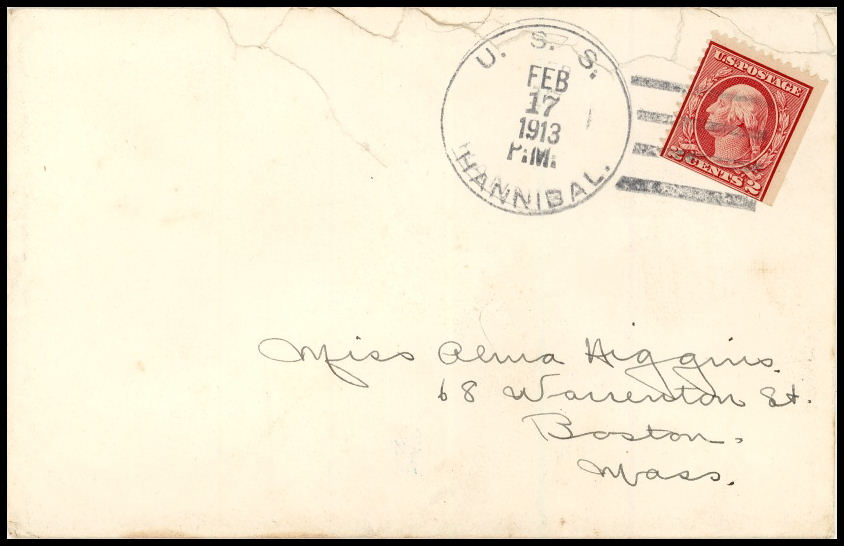 U. S. S.
FEB
17
1913
P.M.
HANNIBAL.
U.S. POSTAGE
2 CENTS 2
Miss Alma Higgins.
68 Warrenton St.
Boston.
Mass.